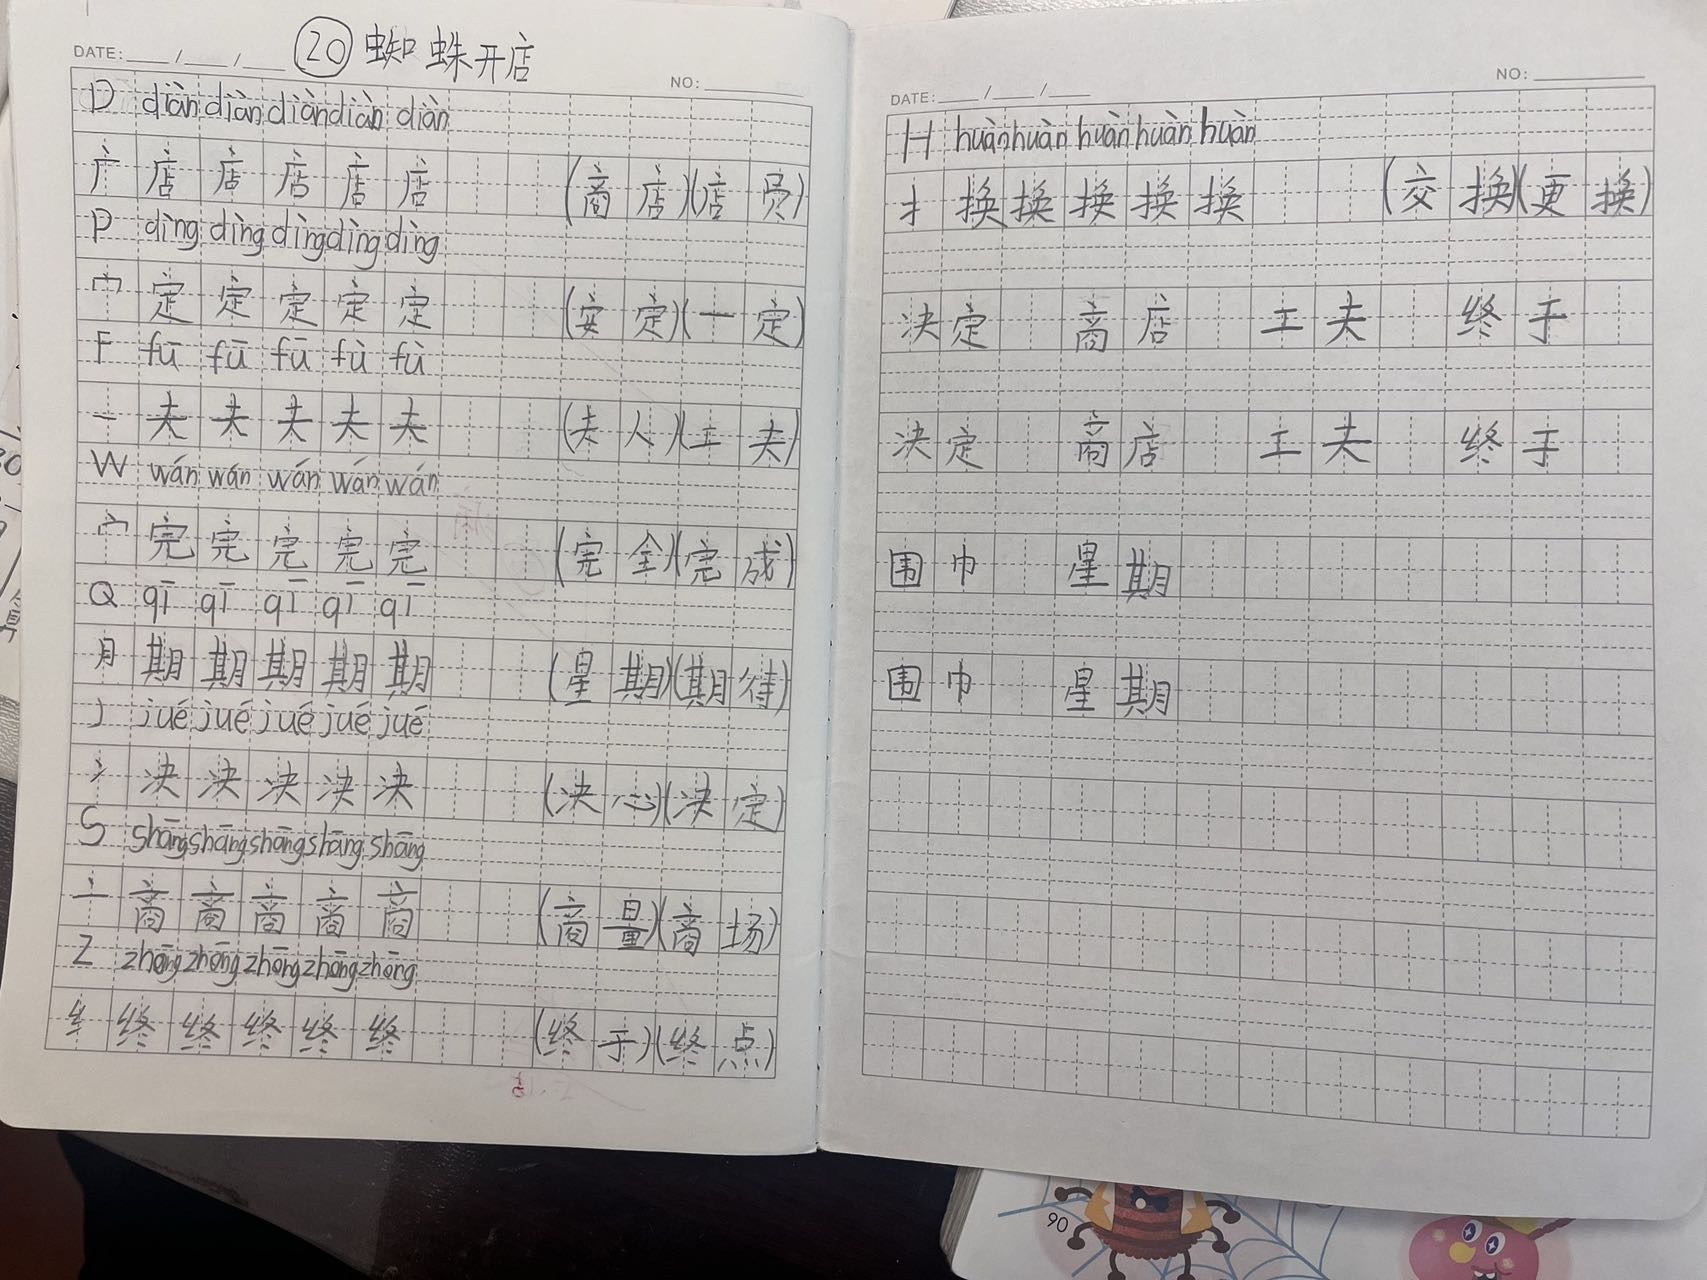 DATE: ___/___/___ ⑳ 蜘蛛开店
NO: ______
D diàn diàn diàn diàn diàn
广 店 店 店 店 店 (商店)(店员)
P dìng dìng dìng dìng dìng
宀 定 定 定 定 定 (安定)(一定)
F fū fū fū fù fù
一 夫 夫 夫 夫 夫 (夫人)(工夫)
W wán wán wán wán wán
宀 完 完 完 完 完 (完全)(完成)
Q qī qī qī qī qī
月 期 期 期 期 期 (星期)(期待)
J jué jué jué jué jué
冫 决 决 决 决 决 (决心)(决定)
S shāng shāng shāng shāng shāng
亠 商 商 商 商 商 (商量)(商场)
Z zhōng zhōng zhōng zhōng zhōng
纟 终 终 终 终 终 (终于)(终点)
DATE: ___/___/___
NO: ______
H huàn huàn huàn huàn huàn
扌 换 换 换 换 换 (交换)(更换)
决定 商店 工夫 终于
决定 商店 工夫 终于
围巾 星期
围巾 星期
90